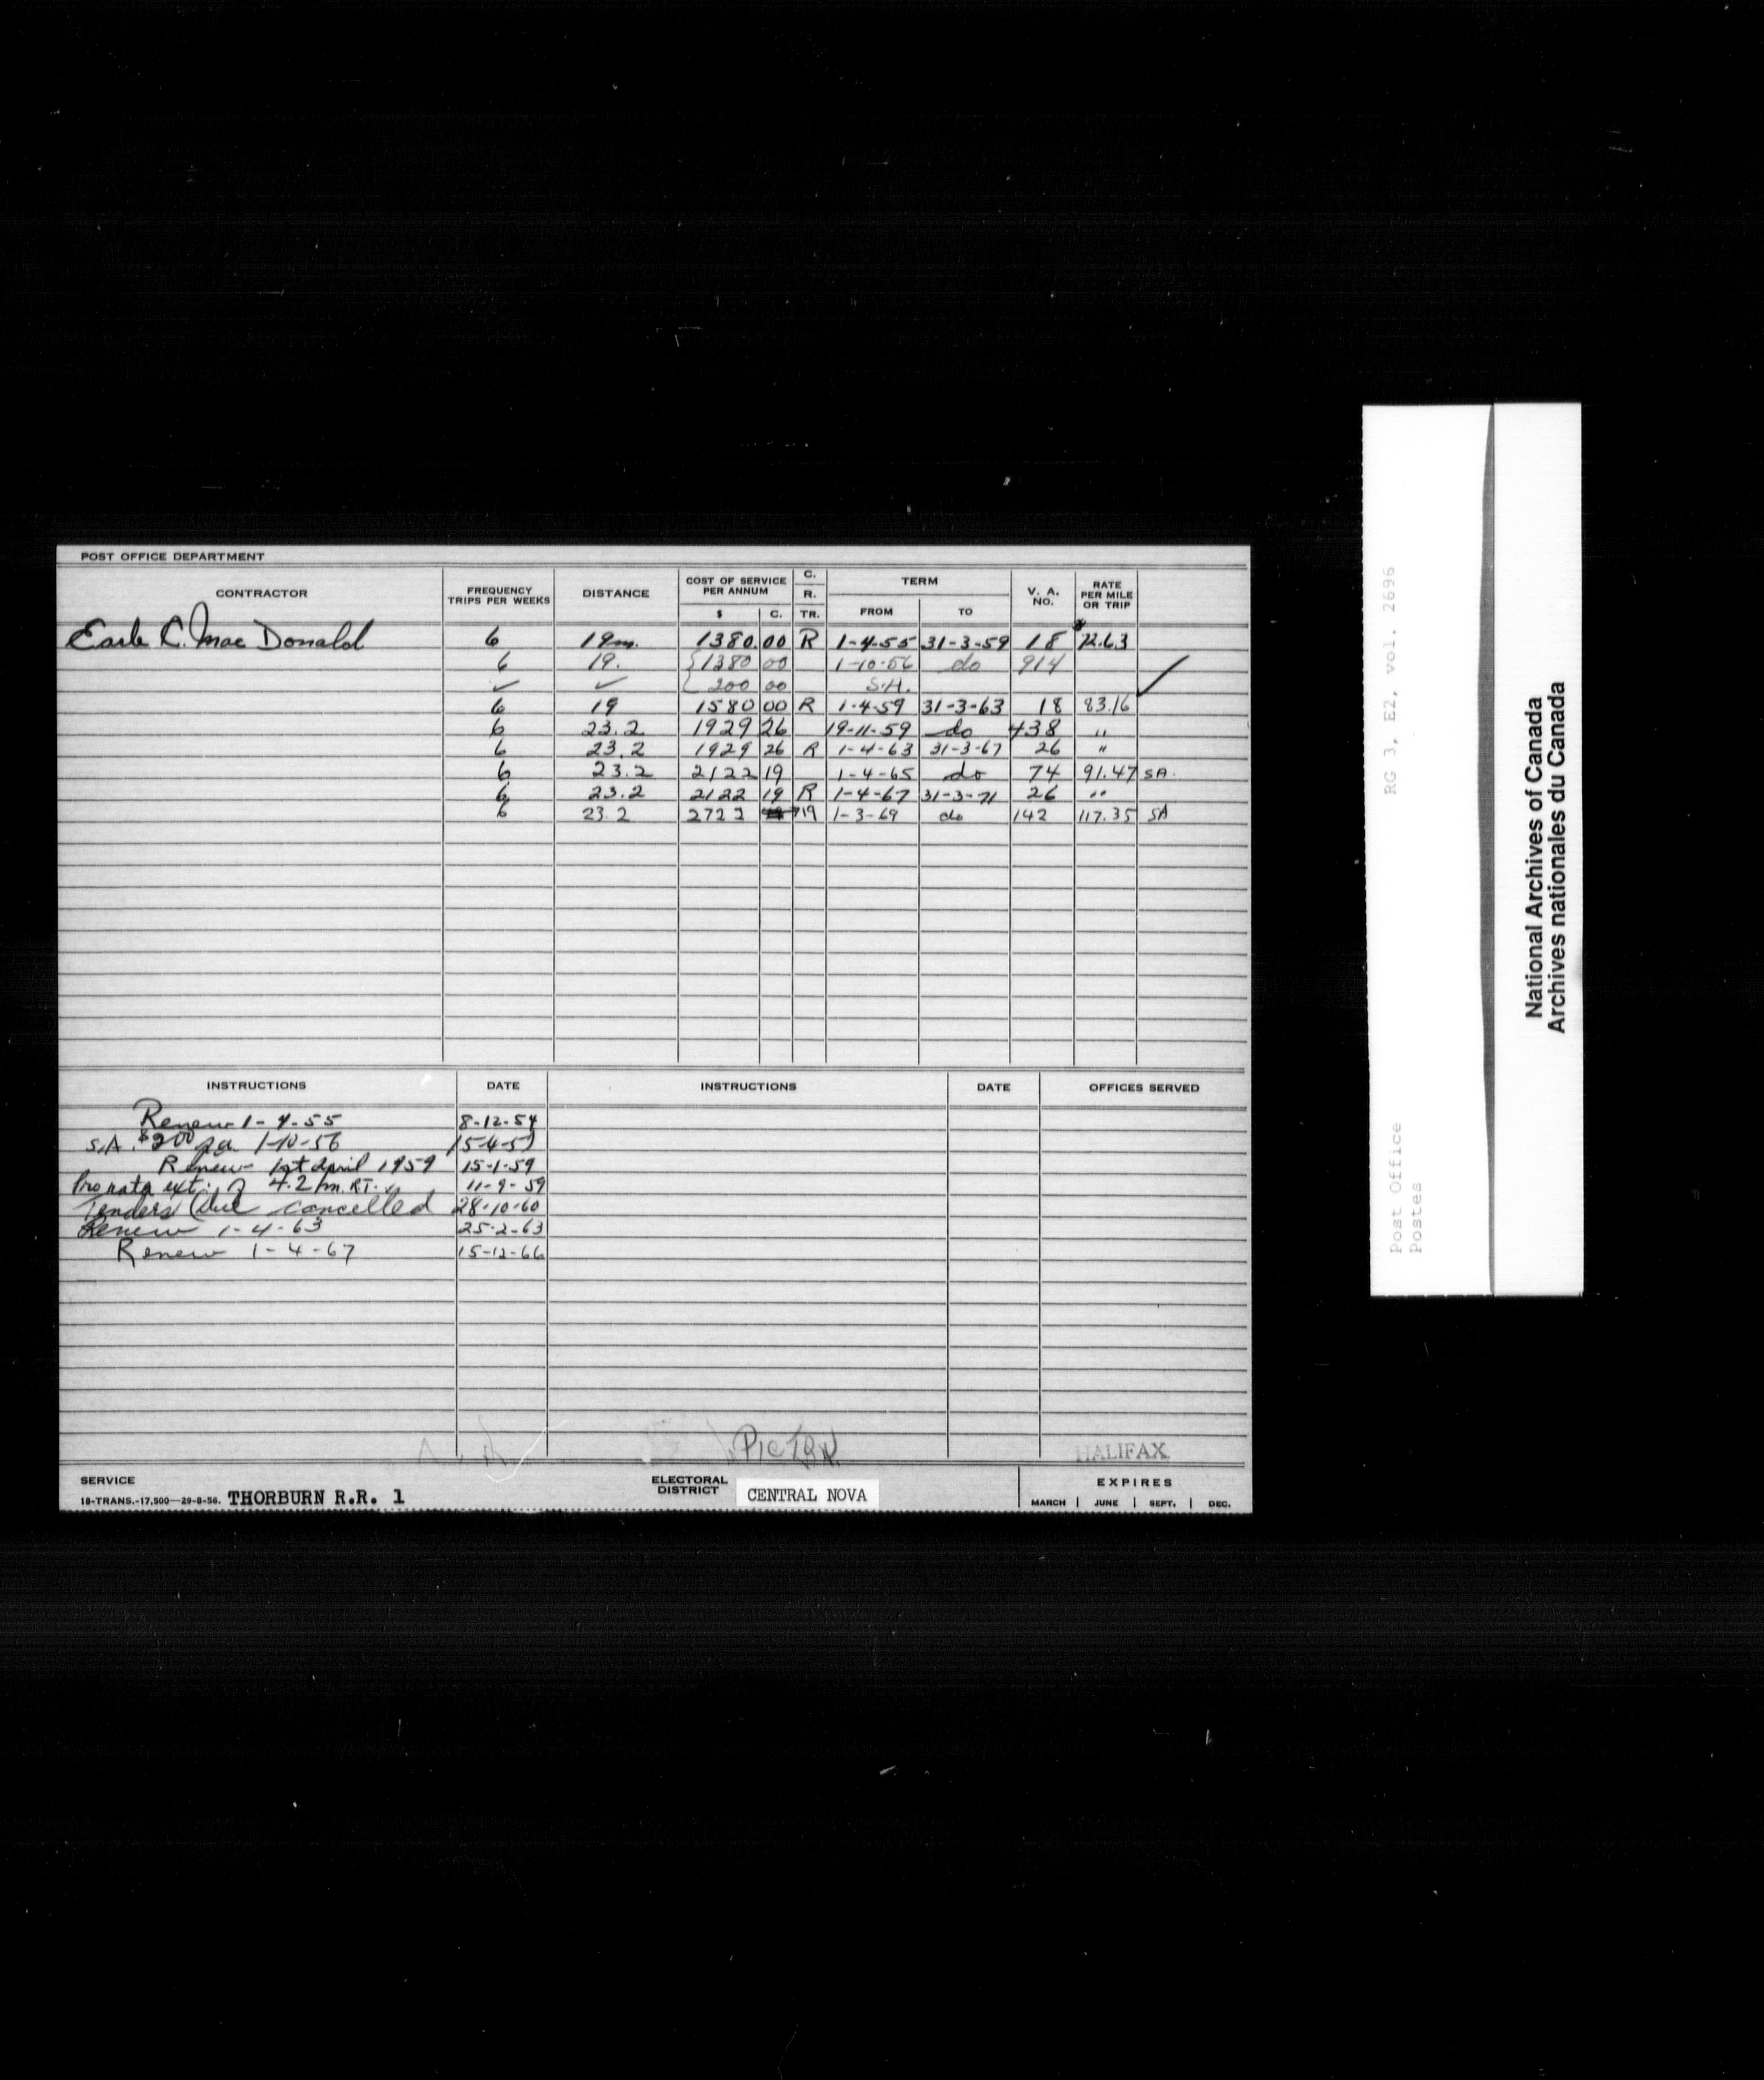 POST OFFICE DEPARTMENT
CONTRACTOR FREQUENCY TRIPS PER WEEKS DISTANCE COST OF SERVICE PER ANNUM $ C. C. R. TR. TERM FROM TO V. A. NO. RATE PER MILE OR TRIP
Earle C. MacDonald 6 19m. 1380.00 R 1-4-55 31-3-59 18 72.63
6 19. {1380 00 1-10-56 do 914
✓ ✓ 200 00 S.A. ✓
6 19 1580 00 R 1-4-59 31-3-63 18 83.16
6 23.2 1929 26 19-11-59 do 438 "
6 23.2 1929 26 R 1-4-63 31-3-67 26 "
6 23.2 2122 19 1-4-65 do 74 91.47 SA.
6 23.2 2122 19 R 1-4-67 31-3-71 26 "
6 23.2 2722 19 1-3-69 do 142 117.35 SA
INSTRUCTIONS DATE INSTRUCTIONS DATE OFFICES SERVED
Renew 1-4-55 8-12-54
S.A. $200 pa 1-10-56 15-4-57
Renew 1st April 1959 15-1-59
Pro rata ext. of 4.2 m. RT. 11-9-59
Tenders due cancelled 28-10-60
Renew 1-4-63 25-2-63
Renew 1-4-67 15-12-66
Pictou
HALIFAX
SERVICE
18-TRANS.-17,500-29-8-56. THORBURN R.R. 1
ELECTORAL DISTRICT CENTRAL NOVA
EXPIRES
MARCH | JUNE | SEPT. | DEC.
RG 3, E2, vol. 2696
Post Office
Postes
National Archives of Canada
Archives nationales du Canada